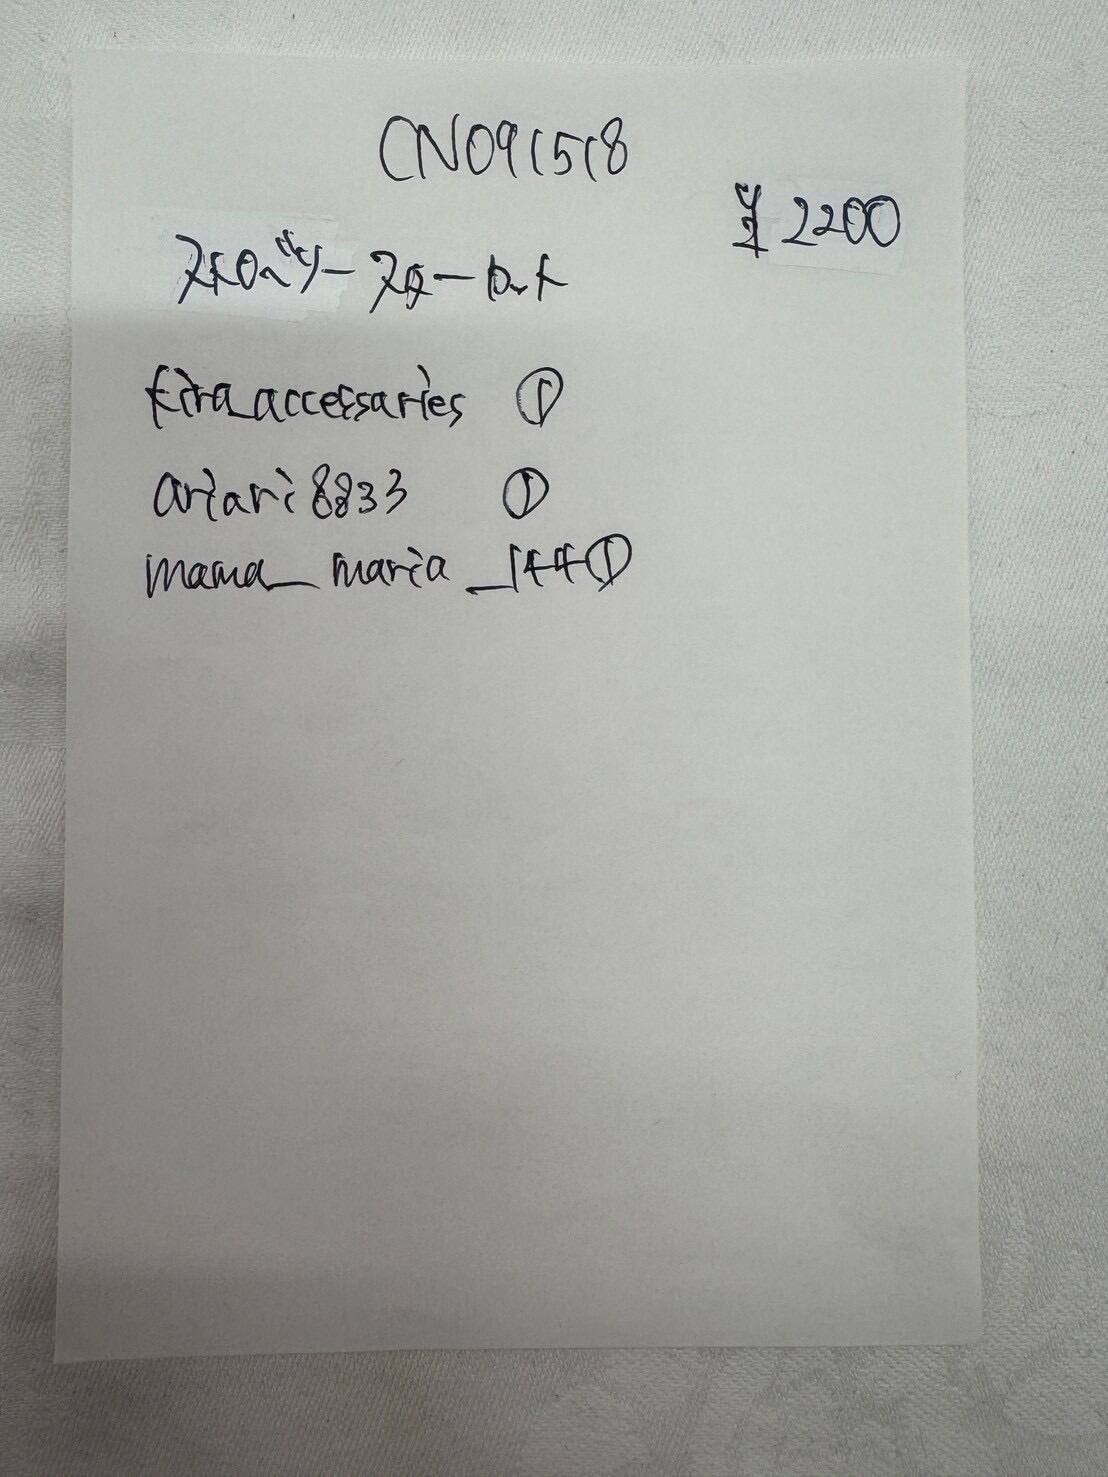 CN091518
¥2200
kira_accessaries ①
ariari8833 ①
mama_maria_144①